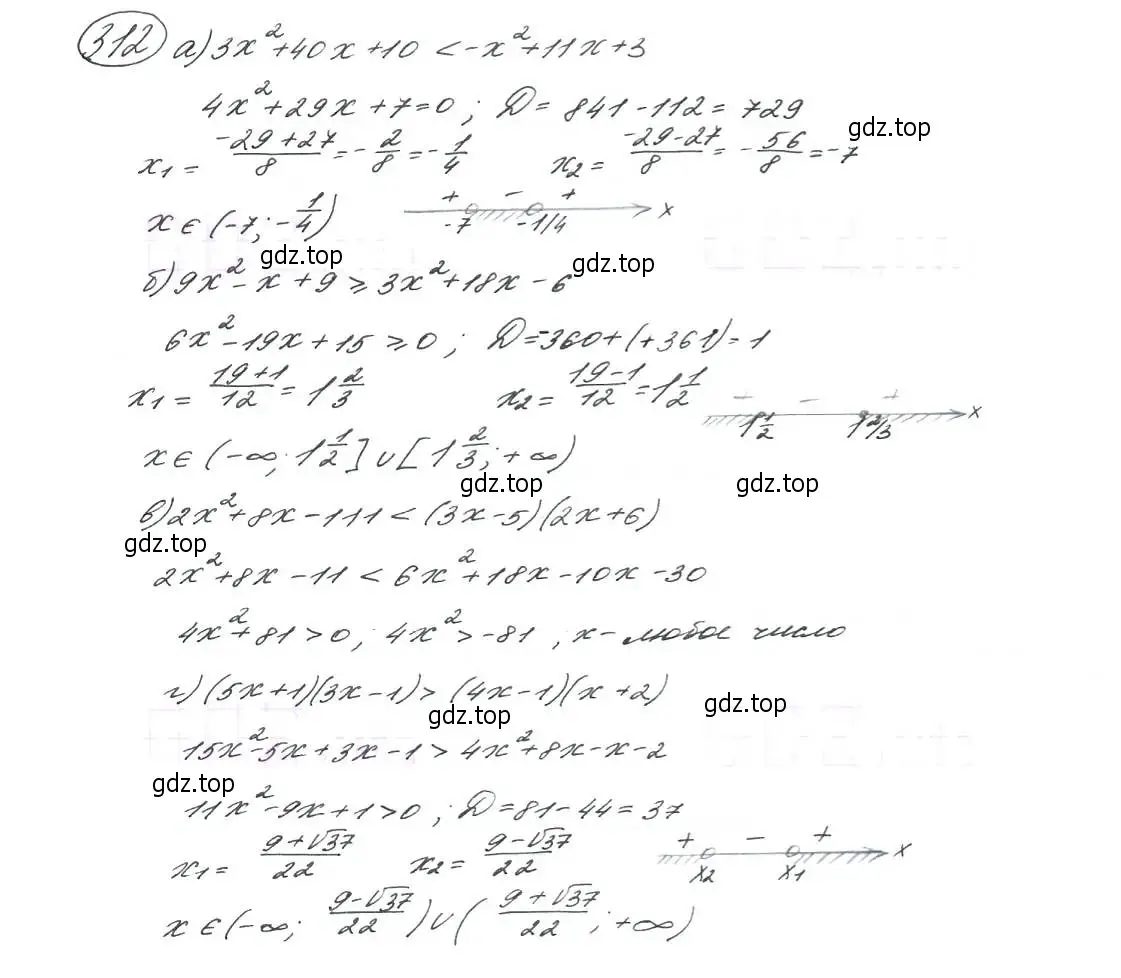 312 а) 3x²+40x+10 < -x²+11x+3
4x²+29x+7=0 ; D= 841-112= 729
gdz.top
x₁ = (-29+27)/8 = -2/8 = -1/4 x₂ = (-29-27)/8 = -56/8 = -7
+ - +
x ∈ (-7; -1/4) -7 -1/4 x
gdz.top gdz.top
б) 9x²-x+9 ≥ 3x²+18x-6
6x²-19x+15 ≥ 0 ; D=-360+(+361)=1
x₁ = (19+1)/12 = 1 2/3 x₂ = (19-1)/12 = 1 1/2
+ - +
1 1/2 1 2/3 x
x ∈ (-∞; 1 1/2] ∪ [1 2/3; +∞)
gdz.top gdz.top
в) 2x²+8x-111 < (3x-5)(2x+6)
gdz.top
2x²+8x-11 < 6x²+18x-10x-30
4x²+81>0 ; 4x²>-81 , x- любое число
г) (5x+1)(3x-1) > (4x-1)(x+2)
gdz.top gdz.top
15x²-5x+3x-1 > 4x²+8x-x-2
gdz.top
11x²-9x+1>0 ; D=81-44=37
x₁= (9+√37)/22 x₂= (9-√37)/22
+ - +
x₂ x₁ x
x ∈ (-∞; (9-√37)/22) ∪ ((9+√37)/22; +∞)